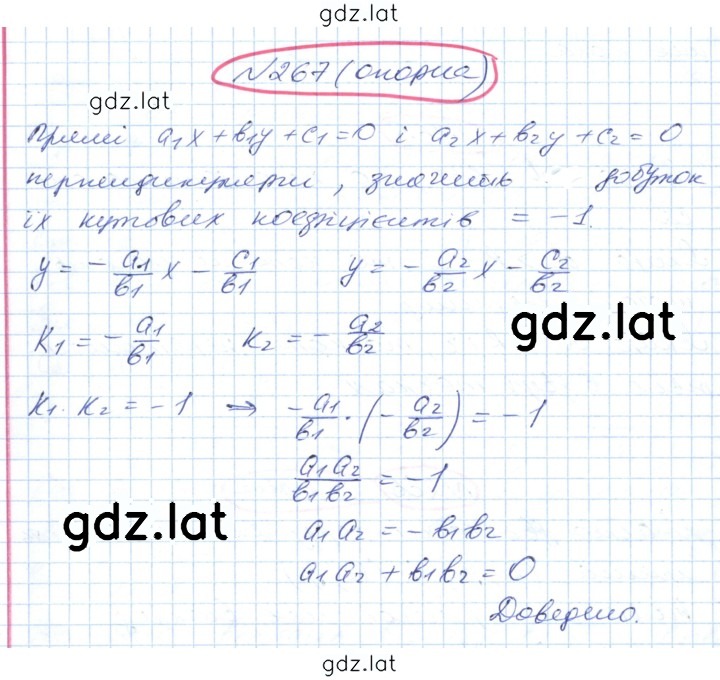 gdz.lat
№267 (опорна)
gdz.lat
Прямі a₁x + b₁y + c₁ = 0 і a₂x + b₂y + c₂ = 0
перпендикулярні, значить добуток
їх кутових коефіцієнтів = -1.
y = - a₁/b₁ x - c₁/b₁ y = - a₂/b₂ x - c₂/b₂
gdz.lat
K₁ = - a₁/b₁ K₂ = - a₂/b₂
K₁ · K₂ = -1 ⇒ - a₁/b₁ · (- a₂/b₂) = -1
a₁a₂/b₁b₂ = -1
gdz.lat
a₁a₂ = - b₁b₂
a₁a₂ + b₁b₂ = 0
Доведено.
gdz.lat